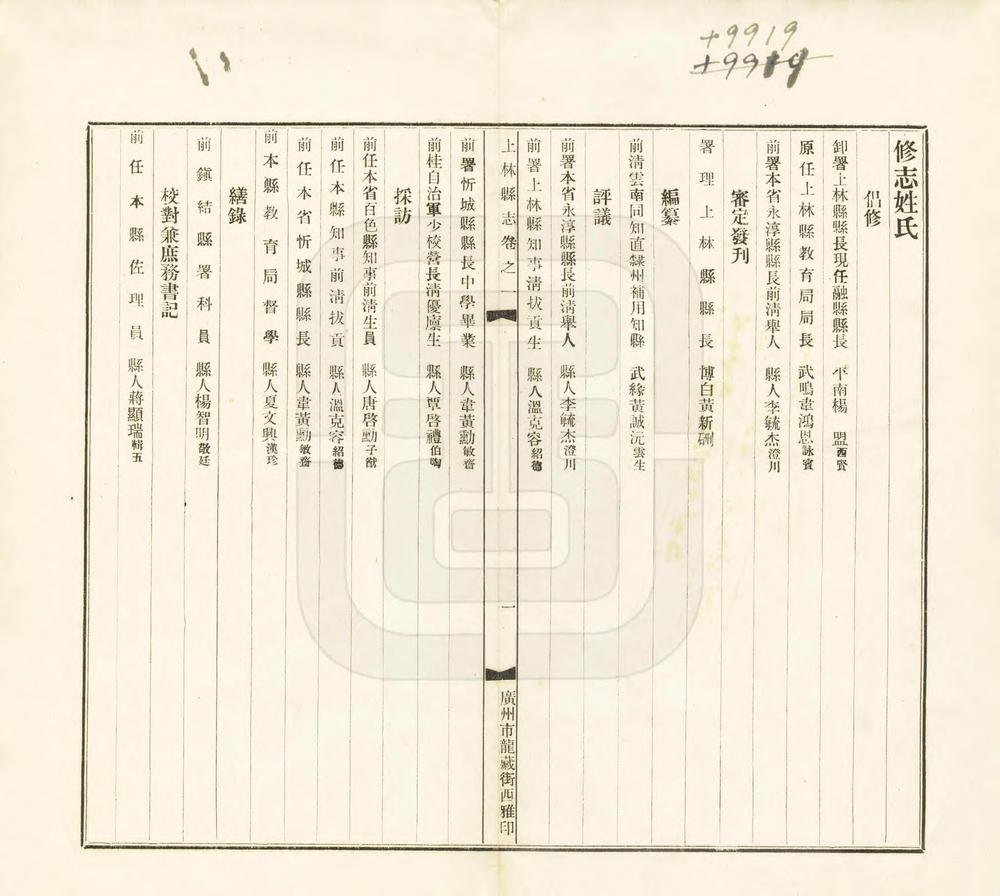 +9919
+9919
修志姓氏
倡修
卸署上林縣縣長現任融縣縣長　平南楊　盟西賢
原任上林縣教育局局長　武鳴韋鴻恩詠賓
前署本省永淳縣縣長前淸舉人　縣人李毓杰澄川
審定發刋
署理上林縣縣長　博白黃新硎
編纂
前淸雲南同知直隸州補用知縣　武緣黃誠沅雲生
評議
前署本省永淳縣縣長前淸舉人　縣人李毓杰澄川
前署上林縣知事淸拔貢生　縣人溫克容紹德
上林縣志卷之一
一
廣州市龍藏街西雅印
前署忻城縣縣長中學畢業　縣人韋黃勳敏齋
前桂自治軍少校營長淸優廩生　縣人覃啓禮伯陶
採訪
前任本省百色縣知事前淸生員　縣人唐啓勳子猷
前任本縣知事前淸拔貢　縣人溫克容紹德
前任本省忻城縣縣長　縣人韋黃勳敏齋
前本縣教育局督學　縣人夏文興漢珍
繕錄
前鎭結縣署科員　縣人楊智明敬廷
校對兼庶務書記
前任本縣佐理員　縣人蔣顯瑞輯五